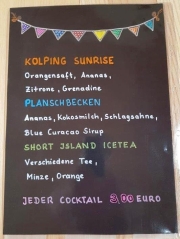 KOLPING SUNRISE
Orangensaft, Ananas,
Zitrone, Grenadine
PLANSCHBECKEN
Ananas, Kokosmilch, Schlagsahne,
Blue Curacao Sirup
SHORT ISLAND ICETEA
Verschiedene Tee,
Minze, Orange
JEDER COCKTAIL 3,00 EURO